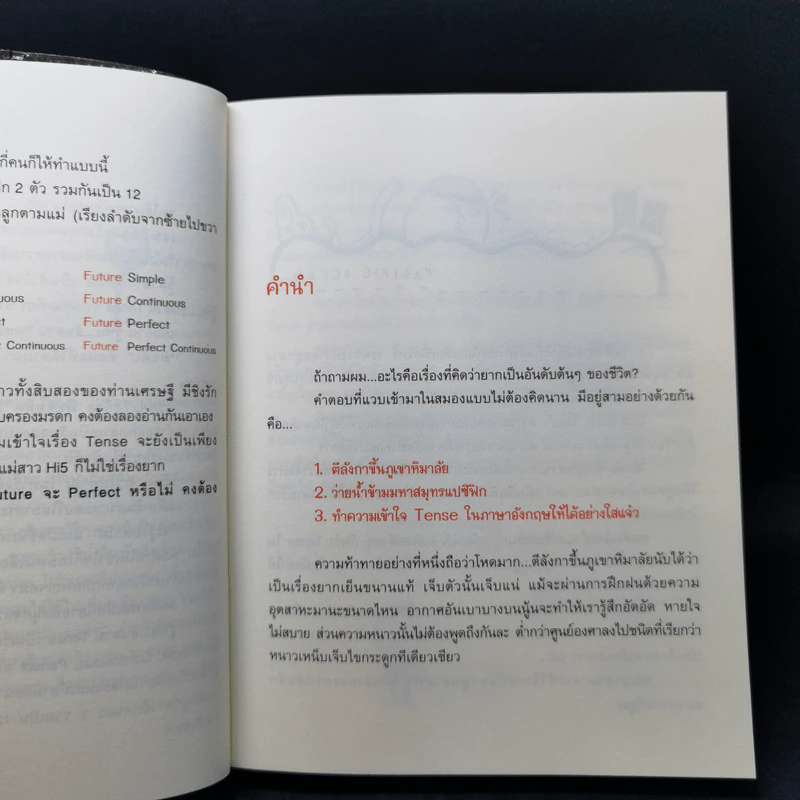 กี่คนก็ให้ทำแบบนี้
2 ตัว รวมกันเป็น 12
ลูกตามแม่ (เรียงลำดับจากซ้ายไปขวา
Future Simple
Future Continuous
Future Perfect
Continuous Future Perfect Continuous
วทั้งสิบสองของท่านเศรษฐี มีชิงรัก
ครองมรดก คงต้องลองอ่านกันเอาเอง
เข้าใจเรื่อง Tense จะยังเป็นเพียง
แม่สาว Hi5 ก็ไม่ใช่เรื่องยาก
uture จะ Perfect หรือไม่ คงต้อง
คำนำ
ถ้าถามผม...อะไรคือเรื่องที่คิดว่ายากเป็นอันดับต้นๆ ของชีวิต?
คำตอบที่แวบเข้ามาในสมองแบบไม่ต้องคิดนาน มีอยู่สามอย่างด้วยกัน
คือ...
1. ตีลังกาขึ้นภูเขาหิมาลัย
2. ว่ายน้ำข้ามมหาสมุทรแปซิฟิก
3. ทำความเข้าใจ Tense ในภาษาอังกฤษให้ได้อย่างใสแจ๋ว
ความท้าทายอย่างที่หนึ่งถือว่าโหดมาก...ตีลังกาขึ้นภูเขาหิมาลัยนับได้ว่า
เป็นเรื่องยากเย็นขนานแท้ เจ็บตัวนั้นเจ็บแน่ แม้จะผ่านการฝึกฝนด้วยความ
อุตสาหะมานะขนาดไหน อากาศอันเบาบางบนนู้นจะทำให้เรารู้สึกอัดอัด หายใจ
ไม่สบาย ส่วนความหนาวนั้นไม่ต้องพูดถึงกันละ ต่ำกว่าศูนย์องศาลงไปชนิดที่เรียกว่า
หนาวเหน็บเจ็บไขกระดูกทีเดียวเชียว